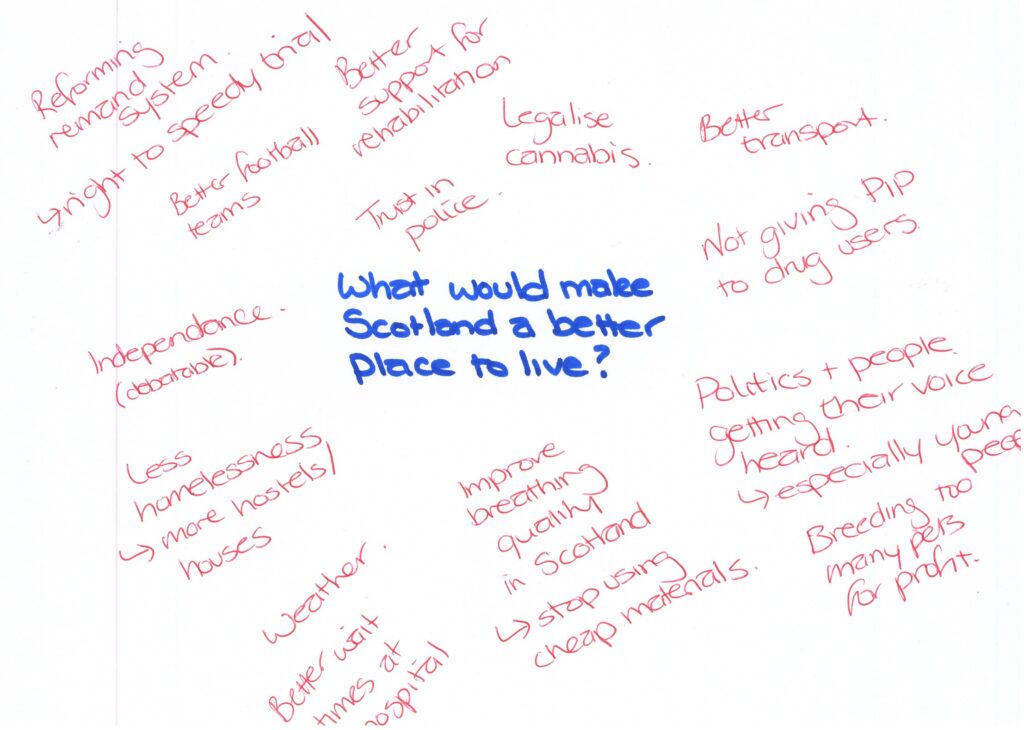 Reforming
remand
system.
↳right to speedy trial
Better
support for
rehabilitation
Legalise
cannabis.
Better
transport.
Better football
teams
Trust in
police.
Not giving PIP
to drug users.
What would make
Scotland a better
place to live?
Independance.
(debatable).
Politics + people
getting their voice
heard.
↳ especially young
peop
Less
homelessness
↳ more hostels/
houses
Improve
breathing
quality
in Scotland
↳ stop using
cheap materials.
Breeding too
many pets
for profit.
Weather.
Better wait
times at
hospital